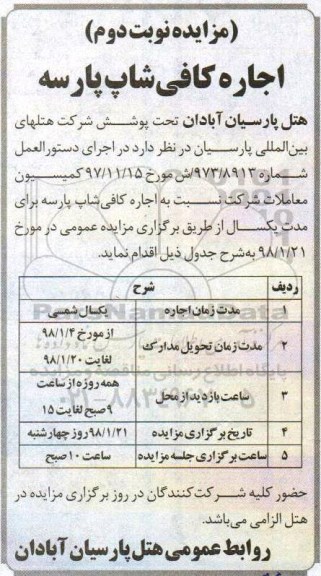 (مزایده نوبت دوم)
اجاره کافی شاپ پارسه
هتل پارسیان آبادان تحت پوشش شرکت هتلهای
بین‌المللی پارسیان در نظر دارد در اجرای دستورالعمل
شماره ۹۷۳/۸۹۱۳/ش مورخ ۹۷/۱۱/۱۵ کمیسیون
معاملات شرکت نسبت به اجاره کافی‌شاپ پارسه برای
مدت یکسال از طریق برگزاری مزایده عمومی در مورخ
۹۸/۱/۲۱ به‌شرح جدول ذیل اقدام نماید.
ردیف شرح
۱ مدت زمان اجاره یکسال شمسی
۲ مدت زمان تحویل مدارک از مورخ ۹۸/۱/۴
لغایت ۹۸/۱/۲۰
۳ ساعت بازدید از محل همه روزه از ساعت
۹ صبح لغایت ۱۵
۴ تاریخ برگزاری مزایده ۹۸/۱/۲۱ روز چهارشنبه
۵ ساعت برگزاری جلسه مزایده ساعت ۱۰ صبح
حضور کلیه شرکت‌کنندگان در روز برگزاری مزایده در
هتل الزامی می‌باشد.
روابط عمومی هتل پارسیان آبادان